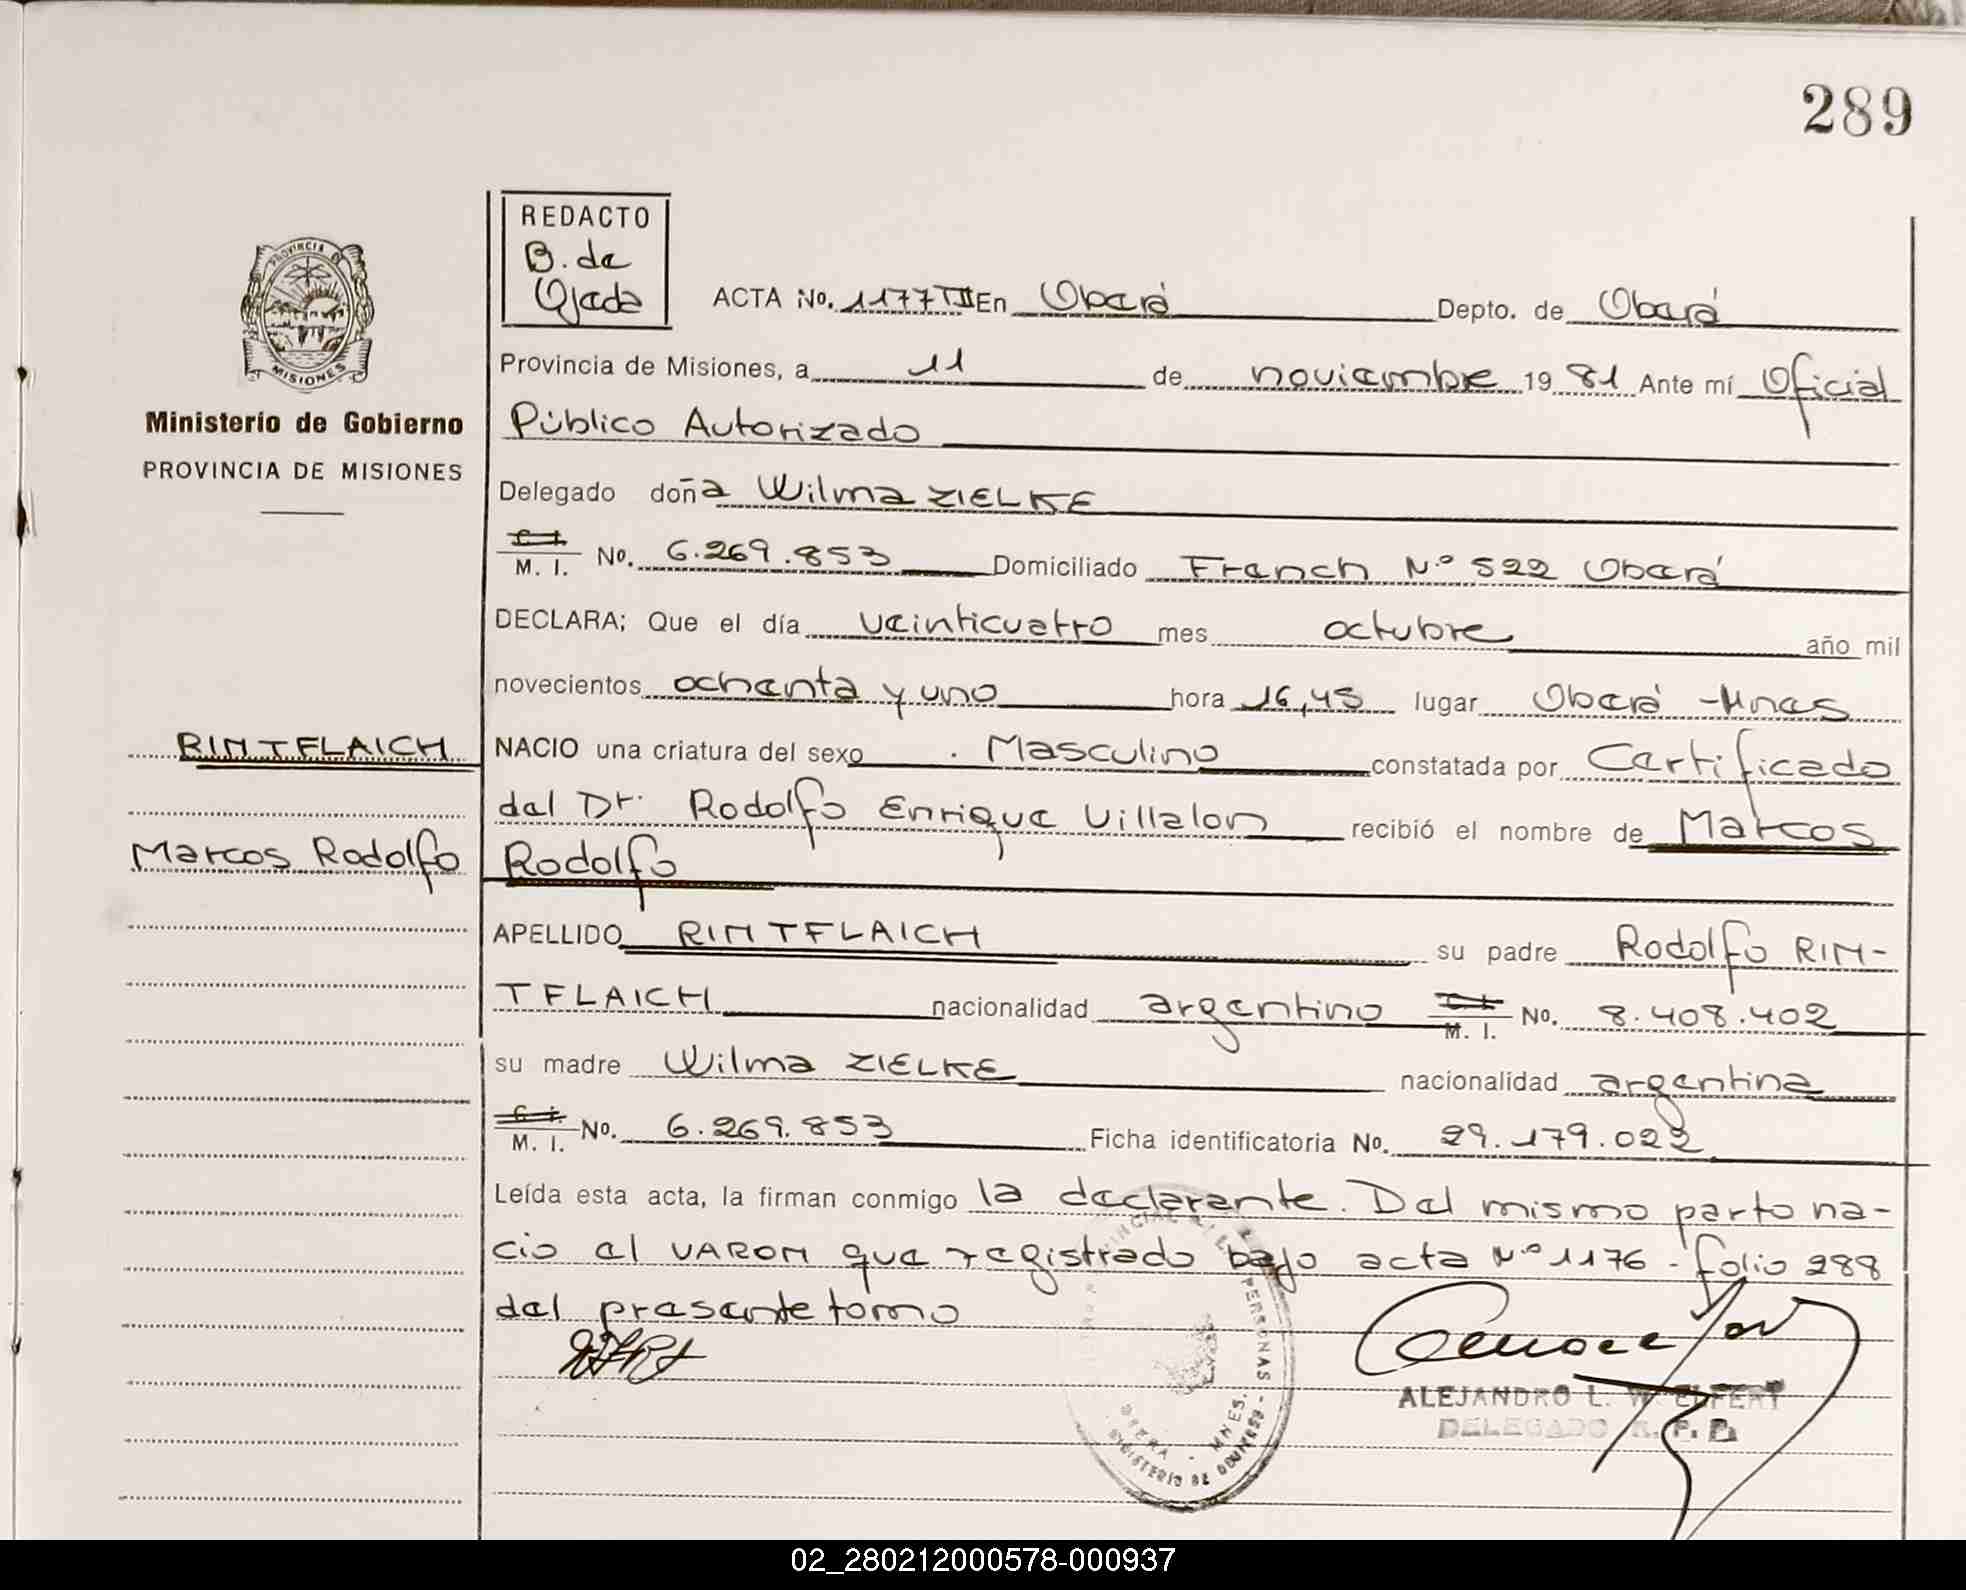 289
REDACTO
B. de
Ojeda
PROVINCIA DE
MISIONES
Ministerio de Gobierno
PROVINCIA DE MISIONES
ACTA No. 1177 TII En Oberá Depto. de Oberá
Provincia de Misiones, a 11 de noviembre 19 81 Ante mí Oficial
Público Autorizado
Delegado doña Wilma ZIELKE
C. I. M. I. No. 6.269.853 Domiciliado French Nº 522 Oberá
DECLARA; Que el día veinticuatro mes octubre año mil
novecientos ochenta y uno hora 16,45 lugar Oberá - Mnes
RINTFLAICH
NACIO una criatura del sexo Masculino constatada por Certificado
del Dr. Rodolfo Enrique Villalon recibió el nombre de Marcos
Marcos Rodolfo
Rodolfo
APELLIDO RINTFLAICH su padre Rodolfo RIN-
TFLAICH nacionalidad argentino C. I. M. I. No. 8.408.402
su madre Wilma ZIELKE nacionalidad argentina
C. I. M. I. No. 6.269.853 Ficha identificatoria No. 29.179.022
Leída esta acta, la firman conmigo la declarante. Del mismo parto na-
cio el VARON que registrado bajo acta Nº 1176 - folio 288
del presente tomo
PERSONAS
OBERA - MNES.
ALEJANDRO L. W. ELFERT
DELEGADO R. P. P.
02_280212000578-000937